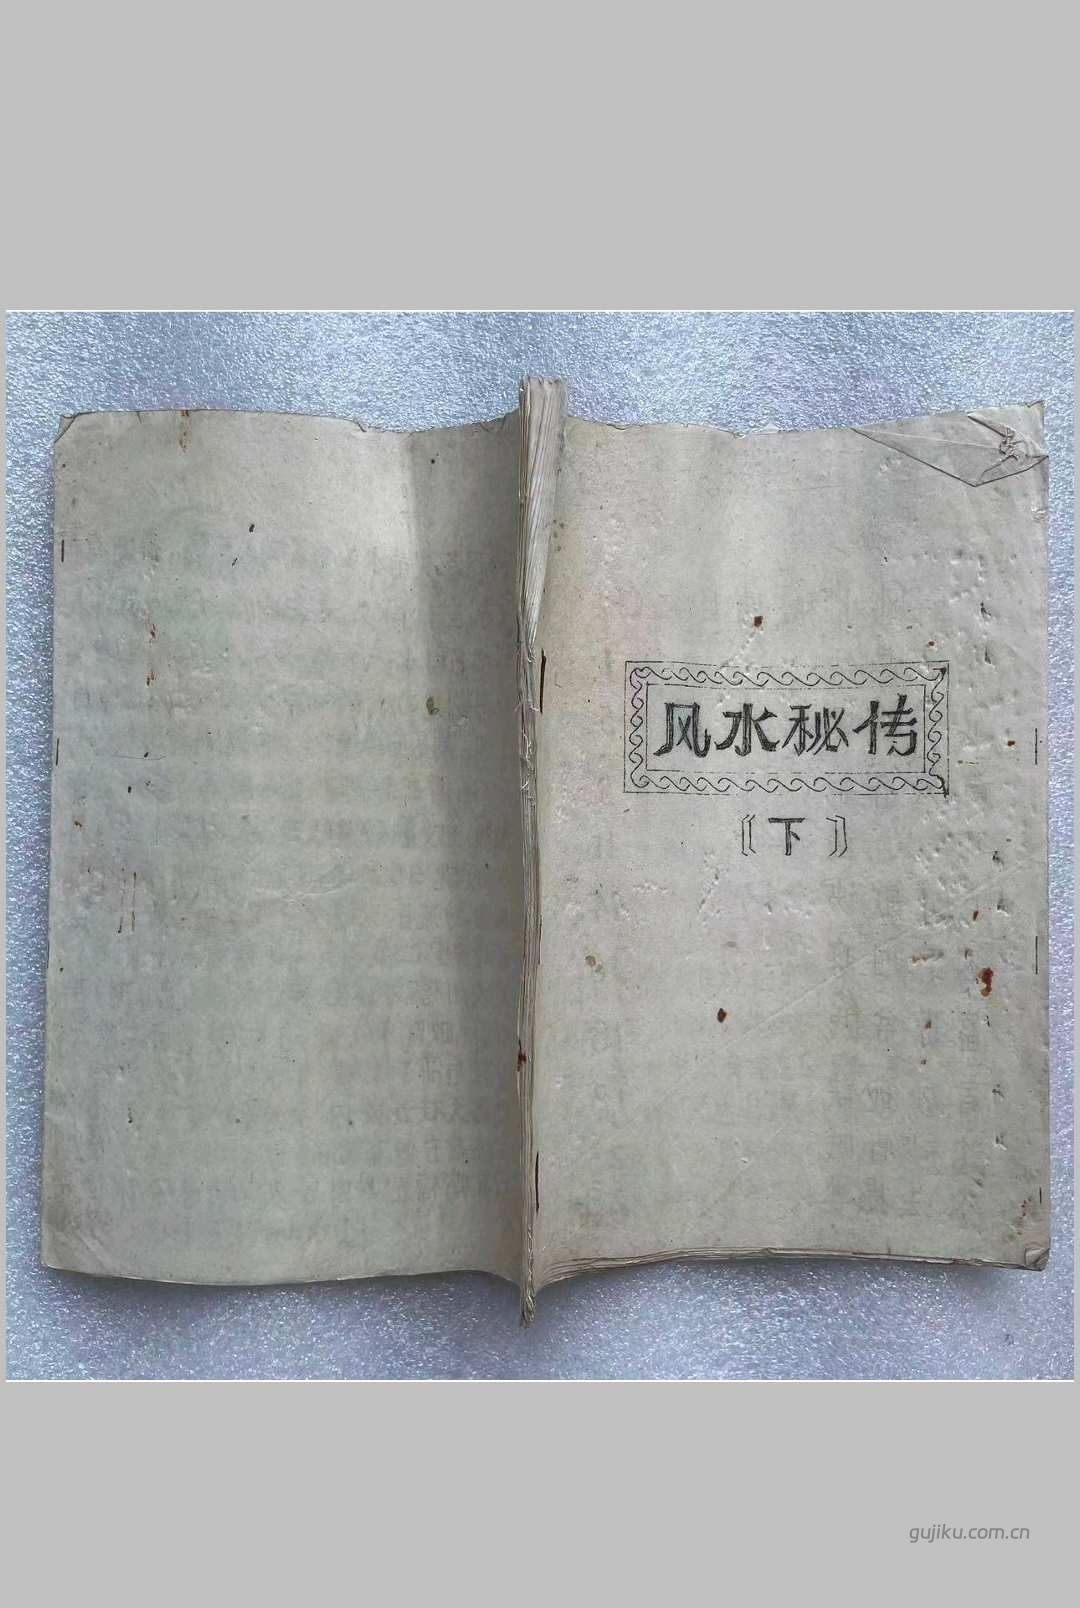 风水秘传
〖下〗
gujiku.com.cn